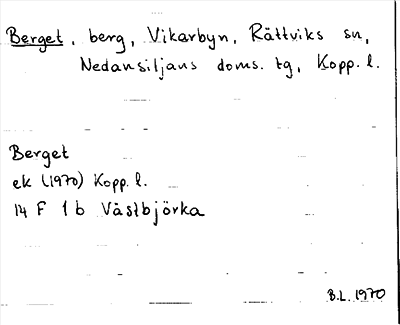 Berget, berg, Vikarbyn, Rättviks sn,
Nedansiljans doms. tg, Kopp. l.
Berget
ek (1970) Kopp. l.
14 F 1 b Västbjörka
B.L. 1970